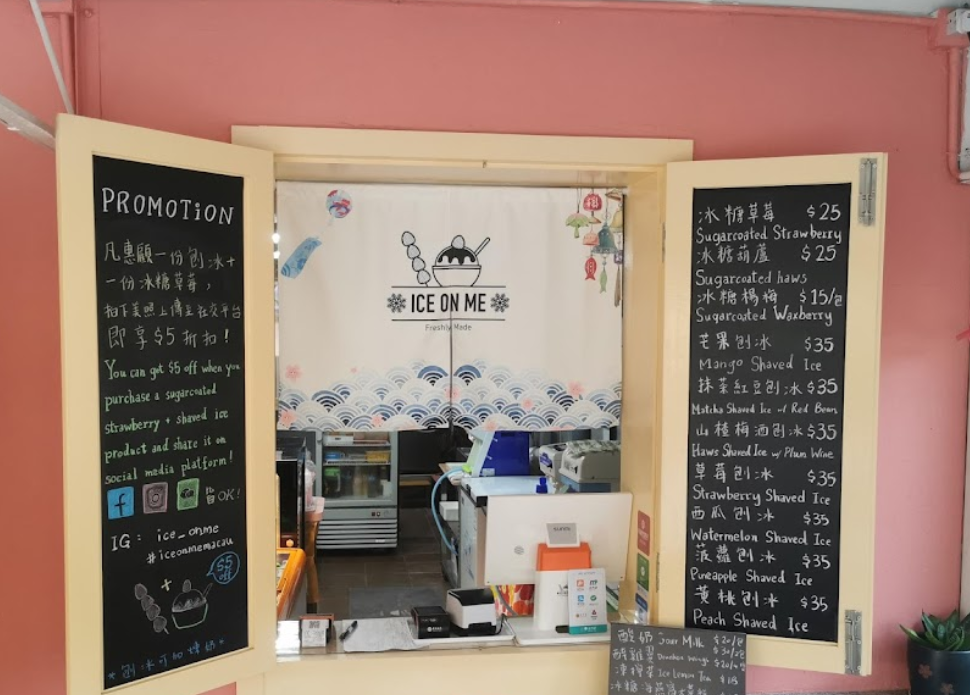 PROMOTiON
凡惠顧一份刨冰+
一份冰糖草莓，
拍下美照上傳至社交平台
即享$5折扣！
You can get $5 off when you
purchase a sugarcoated
strawberry + shaved ice
product and share it on
social media platform!
f
皆OK!
IG: ice_onme
#iceonmemacau
+
$5
off
ICE ON ME
Freshly Made
冰糖草莓 $25
Sugarcoated Strawberry
冰糖葫蘆 $25
Sugarcoated haws
冰糖楊梅 $15/包
Sugarcoated Waxberry
芒果刨冰 $35
Mango Shaved Ice
抹茶紅豆刨冰 $35
Matcha Shaved Ice w/ Red Bean
山楂梅酒刨冰 $35
Haws Shaved Ice w/ Plum Wine
草莓刨冰 $35
Strawberry Shaved Ice
西瓜刨冰 $35
Watermelon Shaved Ice
菠蘿刨冰 $35
Pineapple Shaved Ice
黃桃刨冰 $35
Peach Shaved Ice
酸奶 Sour Milk
凍檸茶 Ice Lemon Tea
冰糖